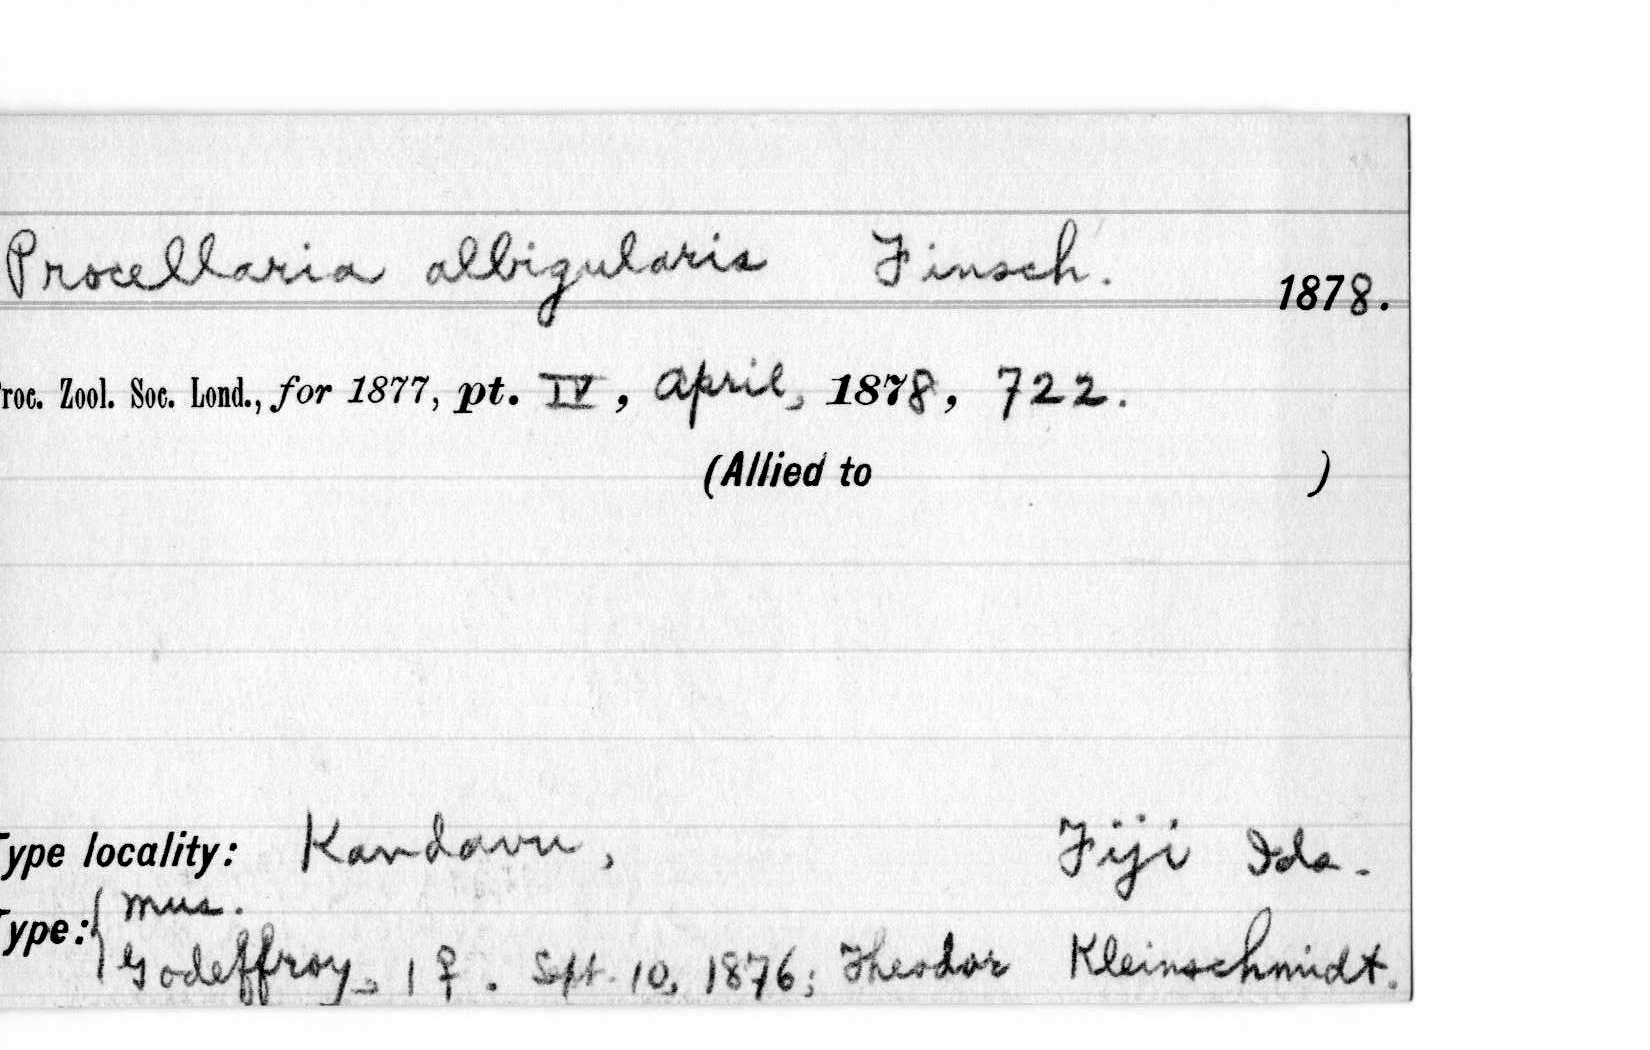 Procellaria albigularis Finsch. 1878.
Proc. Zool. Soc. Lond., for 1877, pt. IV, April, 1878, 722.
(Allied to )
Type locality: Kandavu, Fiji Ids.
Type: { Mus.
Godeffroy, 1 ♀. Sept. 10, 1876; Theodor Kleinschmidt.